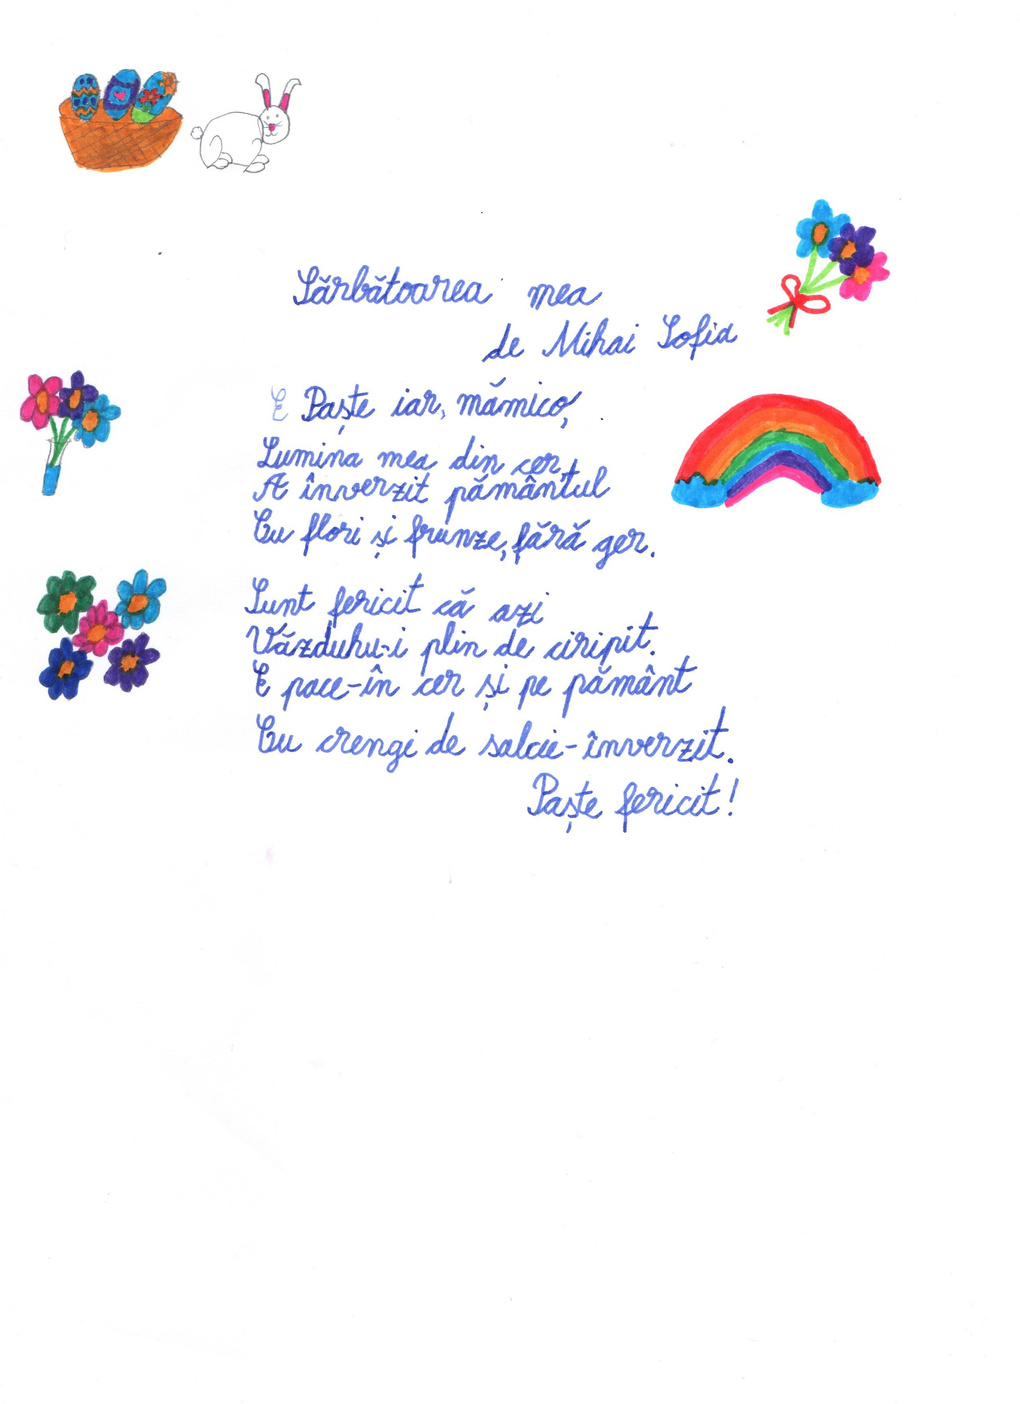 Sărbătoarea mea
de Mihai Sofia
E Paște iar, mămico,
Lumina mea din cer,
A înverzit pământul
Cu flori și frunze, fără ger.
Sunt fericit că azi
Văzduhu-i plin de ciripit.
E pace-în cer și pe pământ
Cu crengi de salcie-înverzit.
Paște fericit!